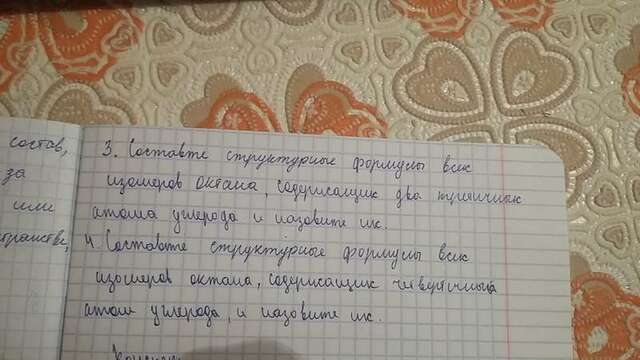 состав,
за
или
3. Составте структурные формулы всех
изомеров октана, содержащих два третичных
атома углерода и назовите их.
4. Составте структурные формулы всех
изомеров октана, содержащих четвертичный
атом углерода, и назовите их.